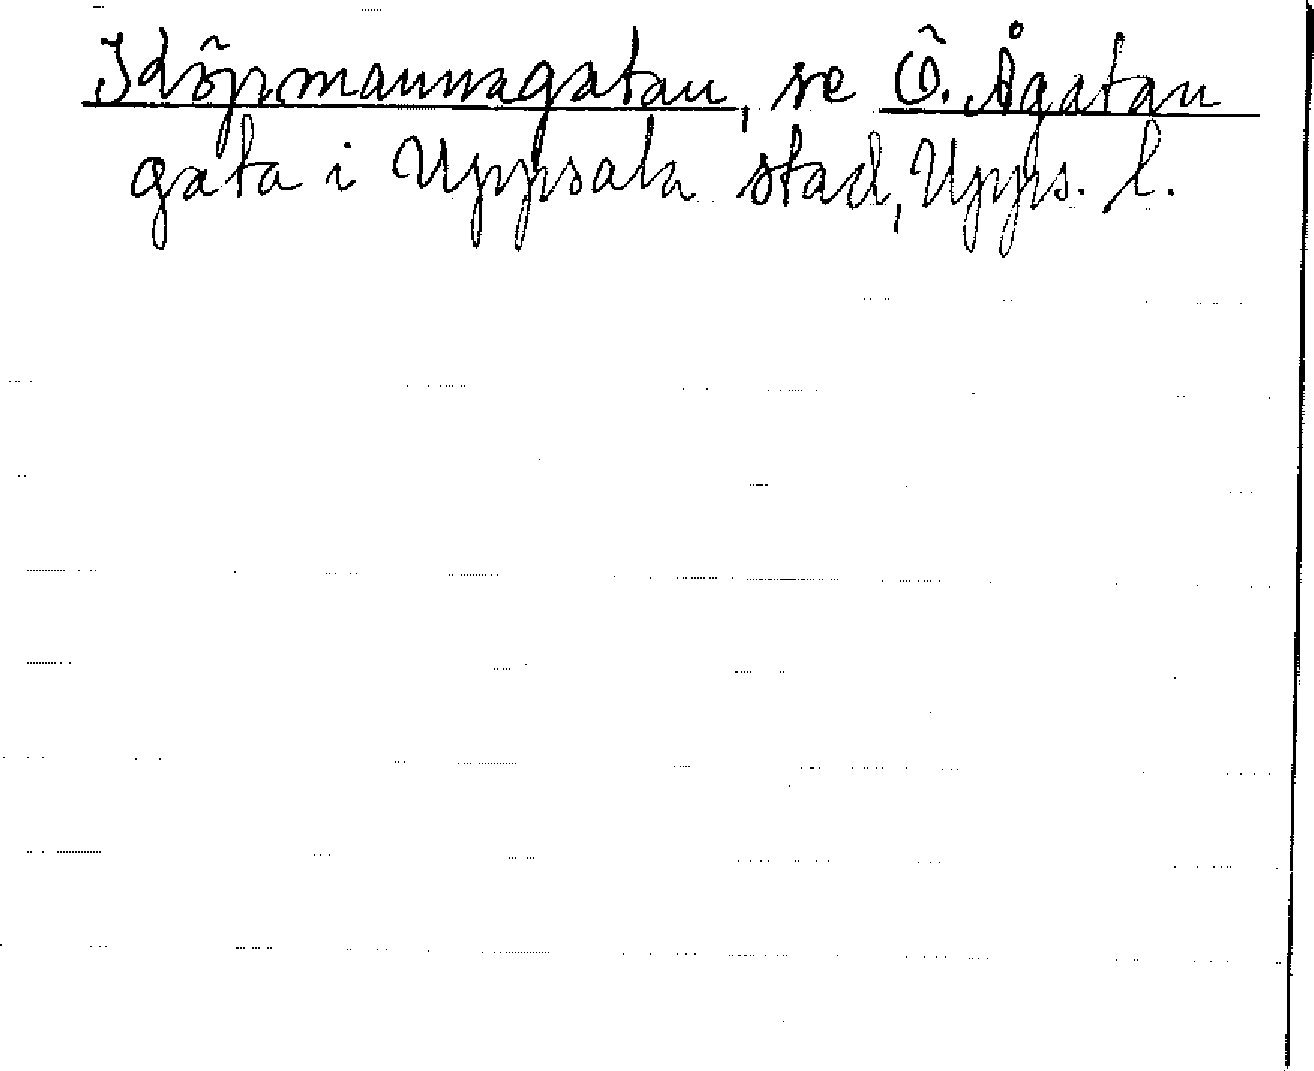 Köpmannagatan, se Ö. Ågatan
gata i Uppsala stad, Upps. l.